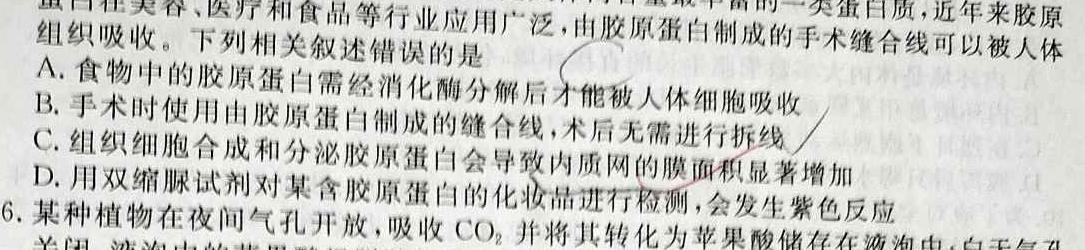 蛋白在美容、医疗和食品等行业应用广泛,由胶原蛋白制成的手术缝合线可以被人体
组织吸收。下列相关叙述错误的是
A. 食物中的胶原蛋白需经消化酶分解后才能被人体细胞吸收
B. 手术时使用由胶原蛋白制成的缝合线,术后无需进行拆线
C. 组织细胞合成和分泌胶原蛋白会导致内质网的膜面积显著增加
D. 用双缩脲试剂对某含胶原蛋白的化妆品进行检测,会发生紫色反应
6. 某种植物在夜间气孔开放,吸收 CO₂ 并将其转化为苹果酸储存在液泡中;白天气孔